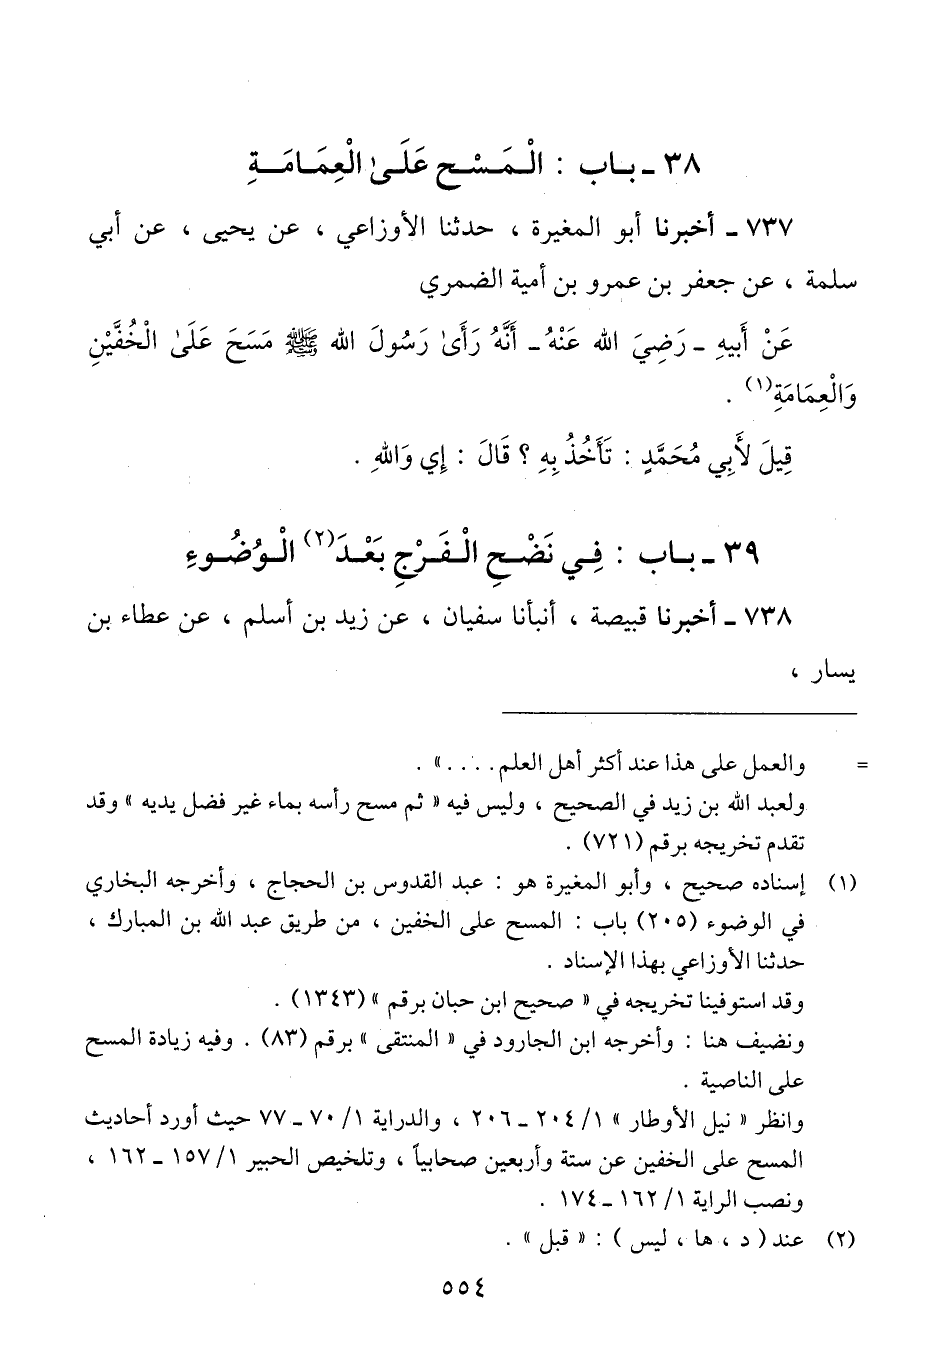 ٣٨ ـ بـاب : الْـمَـسْـحِ عَلَـىٰ الْعِمَـامَـةِ
٧٣٧ ـ أخبرنا أبو المغيرة ، حدثنا الأوزاعي ، عن يحيى ، عن أبي
سلمة ، عن جعفر بن عمرو بن أمية الضمري
عَنْ أَبيهِ ـ رَضِيَ الله عَنْهُ ـ أَنَّهُ رَأَىٰ رَسُولَ الله ﷺ مَسَحَ عَلَىٰ الْخُفَّيْنِ
وَالْعِمَامَةِ(١) .
قِيلَ لأَبِي مُحَمَّدٍ : تَأْخُذُ بِهِ ؟ قَالَ : إِي وَاللهِ .
٣٩ ـ بـاب : فِـي نَضْـحِ الْـفَـرْجِ بَعْـدَ(٢) الْـوُضُـوءِ
٧٣٨ ـ أخبرنا قبيصة ، أنبأنا سفيان ، عن زيد بن أسلم ، عن عطاء بن
يسار ،
= والعمل على هذا عند أكثر أهل العلم. . . . » .
ولعبد الله بن زيد في الصحيح ، وليس فيه « ثم مسح رأسه بماء غير فضل يديه » وقد
تقدم تخريجه برقم (٧٢١) .
(١) إسناده صحيح ، وأبو المغيرة هو : عبد القدوس بن الحجاج ، وأخرجه البخاري
في الوضوء (٢٠٥) باب : المسح على الخفين ، من طريق عبد الله بن المبارك ،
حدثنا الأوزاعي بهذا الإسناد .
وقد استوفينا تخريجه في « صحيح ابن حبان برقم » (١٣٤٣) .
ونضيف هنا : وأخرجه ابن الجارود في « المنتقى » برقم (٨٣) . وفيه زيادة المسح
على الناصية .
وانظر « نيل الأوطار » ١/ ٢٠٤ ـ ٢٠٦ ، والدراية ١/ ٧٠ ـ ٧٧ حيث أورد أحاديث
المسح على الخفين عن ستة وأربعين صحابياً ، وتلخيص الحبير ١/ ١٥٧ ـ ١٦٢ ،
ونصب الراية ١/ ١٦٢ ـ ١٧٤ .
(٢) عند ( د ، ها ، ليس ) : « قبل » .
٥٥٤